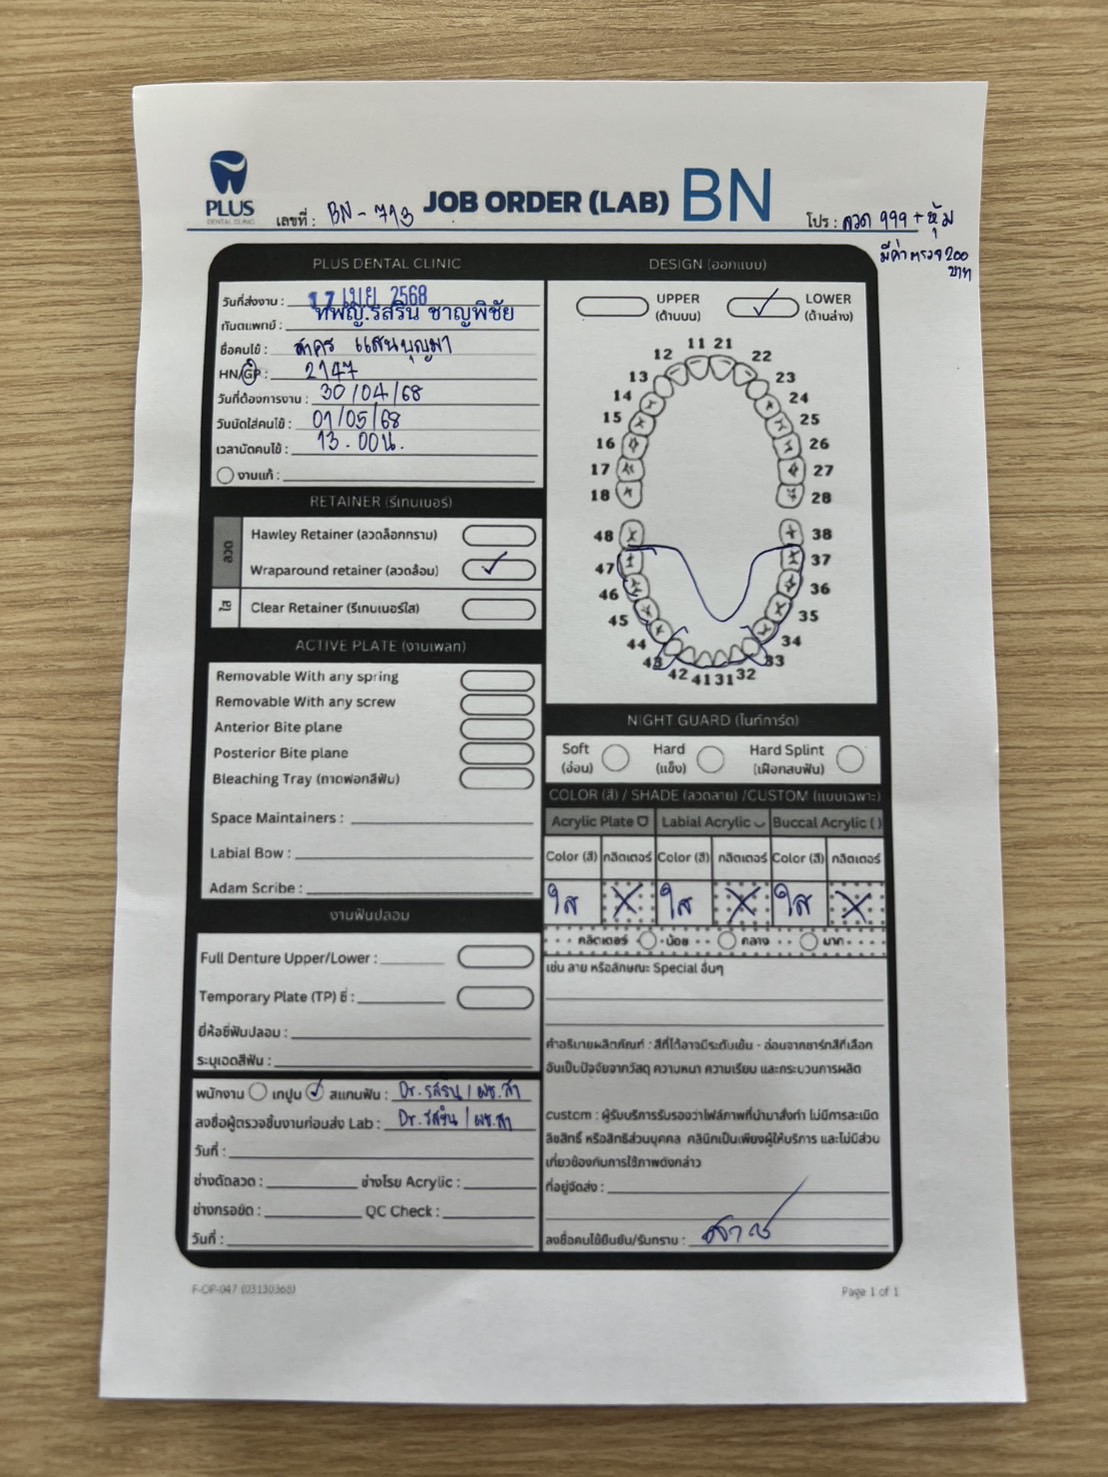 PLUS
DENTAL CLINIC
เลขที่ : BN - 713
JOB ORDER (LAB) BN
โปร : ลวด 999 + หุ้ม
มีค่าตรวจ 200
บาท
PLUS DENTAL CLINIC
วันที่ส่งงาน : 17 เมย 2568
ทันตแพทย์ : ทพญ.รสริน ชาญพิชัย
ชื่อคนไข้ : สาคร แสนบุญมา
HN/GP : 2147
วันที่ต้องการงาน : 30/04/68
วันนัดใส่คนไข้ : 01/05/68
เวลานัดคนไข้ : 13.00น.
งานแก้ :
RETAINER (รีเทนเนอร์)
ลวด
Hawley Retainer (ลวดล็อกกราม)
Wraparound retainer (ลวดล้อม) ✓
ใส
Clear Retainer (รีเทนเนอร์ใส)
ACTIVE PLATE (งานเพลท)
Removable With any spring
Removable With any screw
Anterior Bite plane
Posterior Bite plane
Bleaching Tray (ถาดฟอกสีฟัน)
Space Maintainers :
Labial Bow :
Adam Scribe :
งานฟันปลอม
Full Denture Upper/Lower :
Temporary Plate (TP) ซี่ :
ยี่ห้อซี่ฟันปลอม :
ระบุเฉดสีฟัน :
พนักงาน เทปูน ✓ สแกนฟัน : Dr. รสริน / ผช.สา
ลงชื่อผู้ตรวจชิ้นงานก่อนส่ง Lab : Dr. รสริน / ผช.สา
วันที่ :
ช่างดัดลวด : ช่างโรย Acrylic :
ช่างกรอขัด : QC Check :
วันที่ :
DESIGN (ออกแบบ)
UPPER
(ด้านบน)
✓ LOWER
(ด้านล่าง)
11 21
12 22
13 23
14 24
15 25
16 26
17 27
18 28
48 38
47 37
46 36
45 35
44 34
43 33
42 41 31 32
NIGHT GUARD (ไนท์การ์ด)
Soft
(อ่อน)
Hard
(แข็ง)
Hard Splint
(เฝือกสบฟัน)
COLOR (สี) / SHADE (ลวดลาย) /CUSTOM (แบบเฉพาะ)
Acrylic Plate Labial Acrylic Buccal Acrylic ( )
Color (สี) กลิตเตอร์ Color (สี) กลิตเตอร์ Color (สี) กลิตเตอร์
ใส X ใส X ใส X
กลิตเตอร์ น้อย กลาง มาก
เช่น ลาย หรือลักษณะ Special อื่นๆ
คำอธิบายผลิตภัณฑ์ : สีที่ได้อาจมีระดับเข้ม - อ่อนจากชาร์ทสีที่เลือก
อันเป็นปัจจัยจากวัสดุ ความหนา ความเรียบ และกระบวนการผลิต
custom : ผู้รับบริการรับรองว่าไฟล์ภาพที่นำมาสั่งทำ ไม่มีการละเมิด
ลิขสิทธิ์ หรือสิทธิส่วนบุคคล คลินิกเป็นเพียงผู้ให้บริการ และไม่มีส่วน
เกี่ยวข้องกับการใช้ภาพดังกล่าว
ที่อยู่จัดส่ง :
ลงชื่อคนไข้ยืนยัน/รับทราบ :
F-OP-047 (03130368)
Page 1 of 1